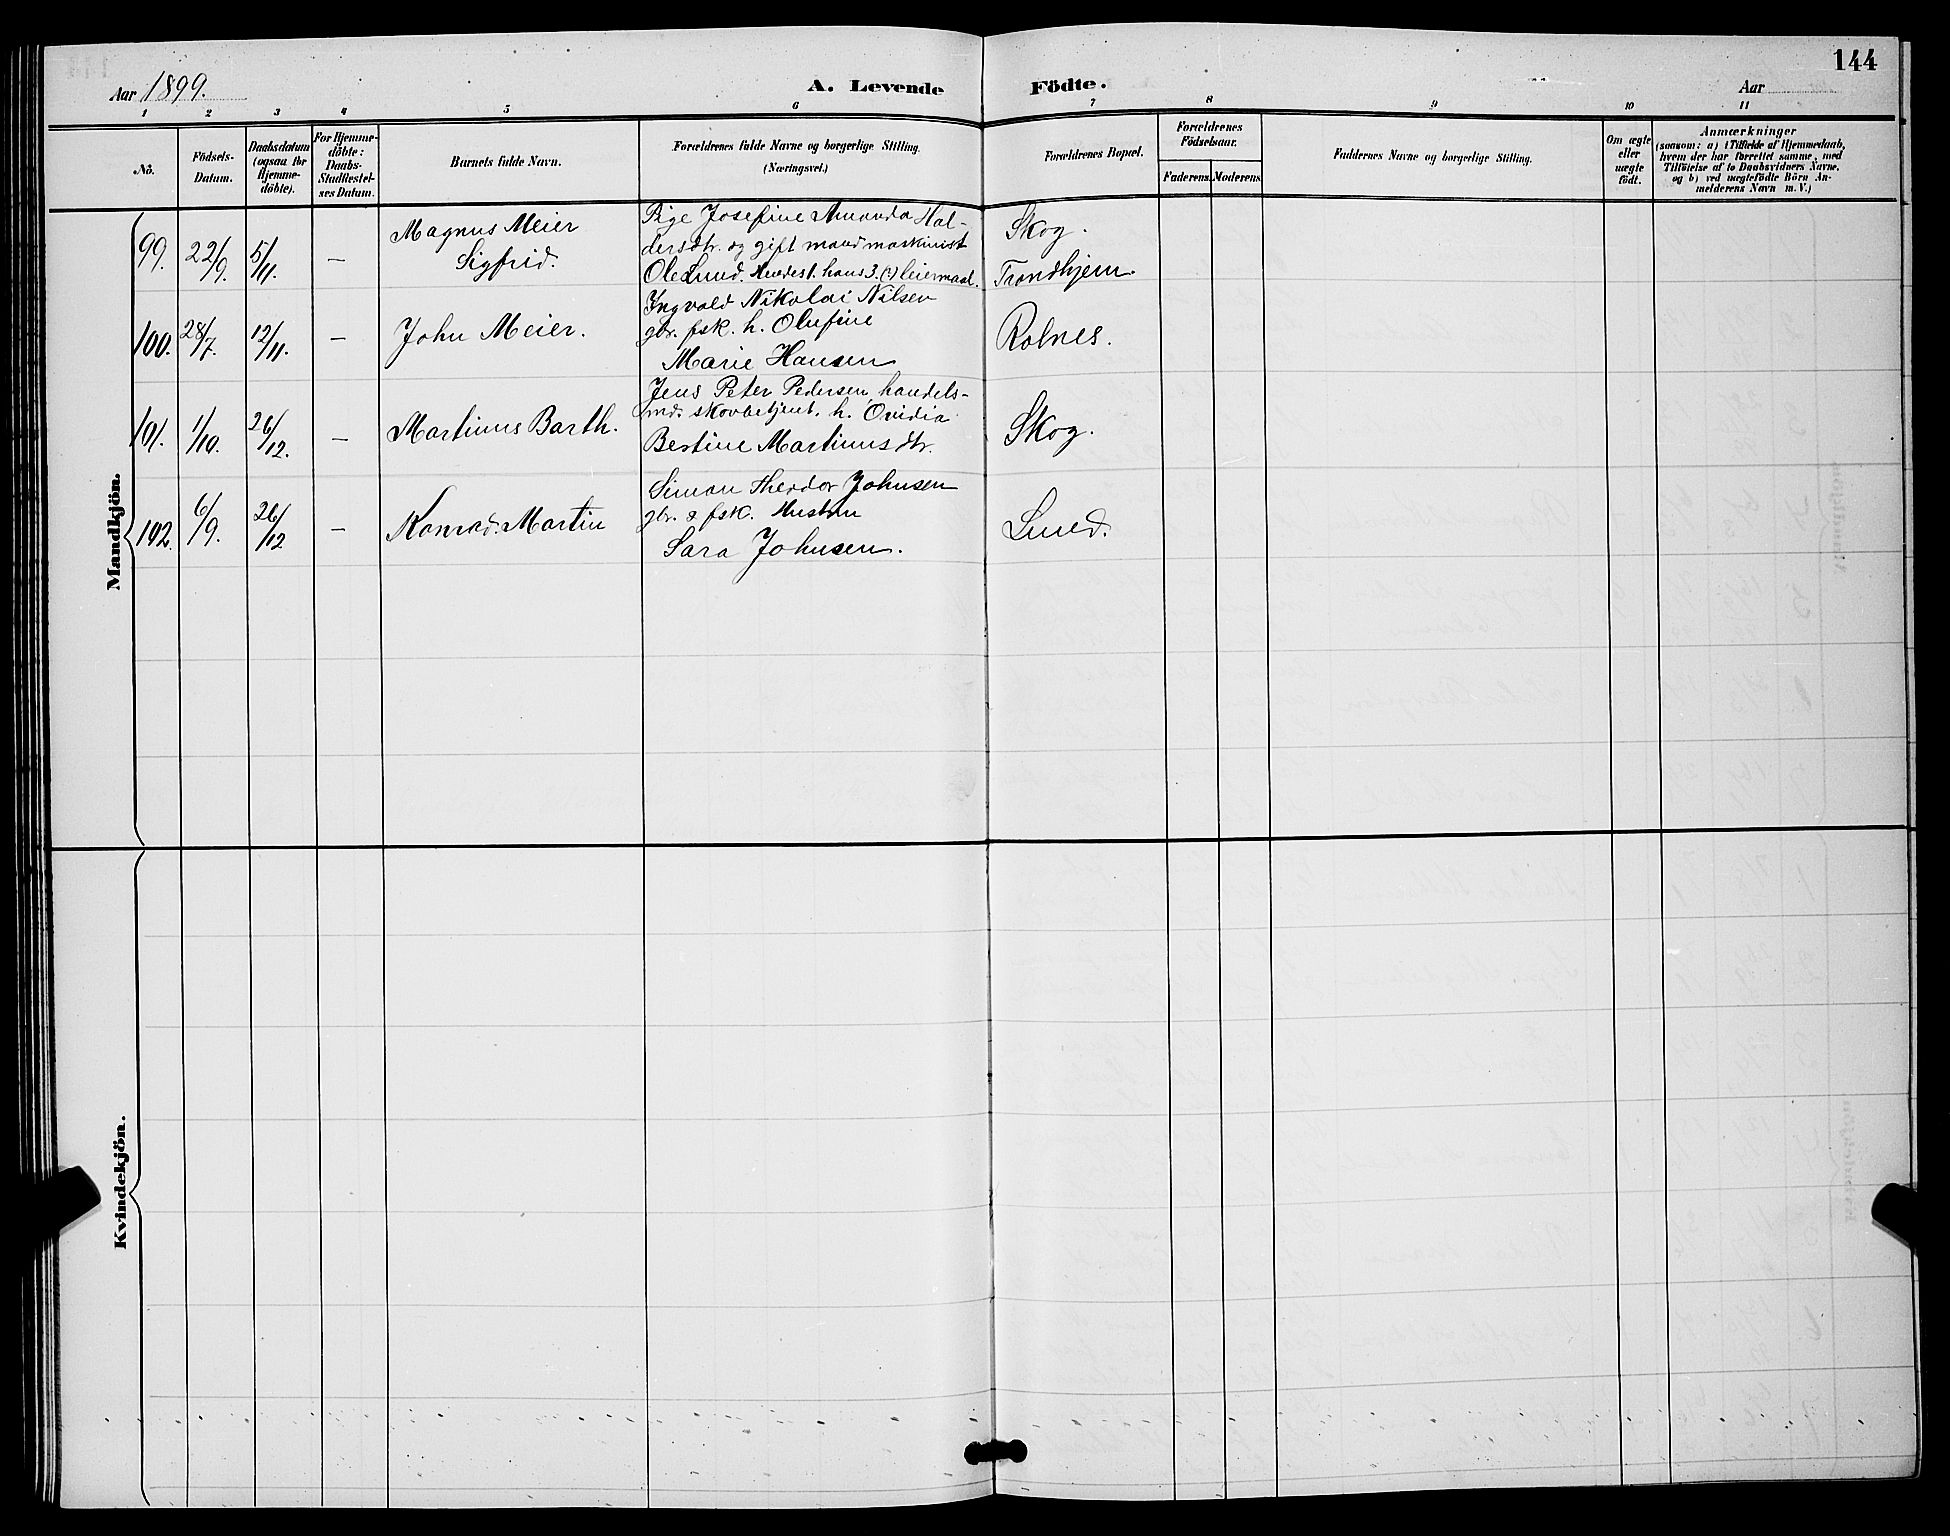 144
Aar 1899.
A. Levende Födte.
Aar
1 2 3 4 5 6 7 8 9 10 11
No.
Födsels-
Datum.
Daabsdatum
(ogsaa for
Hjemme-
döbte).
For Hjemme-
döbte:
Daabs-
Stadfestel-
ses Datum.
Barnets fulde Navn.
Forældrenes fulde Navne og borgerlige Stilling.
(Næringsvei.)
Forældrenes Bopæl.
Forældrenes
Födselsaar.
Faderens. Moderens.
Faddernes Navne og borgerlige Stilling.
Om ægte
eller
uægte
födt.
Anmærkninger
(saasom: a) i Tilfælde af Hjemmedaab,
hvem der har forrettet samme, med
Tilföielse af to Daabsvidners Navne,
og b) ved uægtefödte Börn An-
melderens Navn m. V.)
Mandkjön.
99. 22/9. 5/11. — Magnus Meier
Sigfrid.
Pige Josefine Amanda Hal-
dersdtr. og gift mand maskinist
Ole Lund. hans 3. (?) leiermaal.
Skog.
Trondhjem.
100. 28/7. 12/11. — John Meier.
Ingvald Nikolai Nilsen
gbr. fsk. h. Olufine
Marie Hansen
Rolnes.
101. 1/10. 26/12. — Martinus Barth.
Jens Peter Pedersen, handels-
md. skovbetjent. h. Ovidia
Bertine Martinusdtr.
Skog.
102. 6/9. 26/12 — Konrad Martin
Simon Theodor Johnsen
gbr. & fsk. Hustru
Sara Johnsen.
Lund.
Kvindekjön.